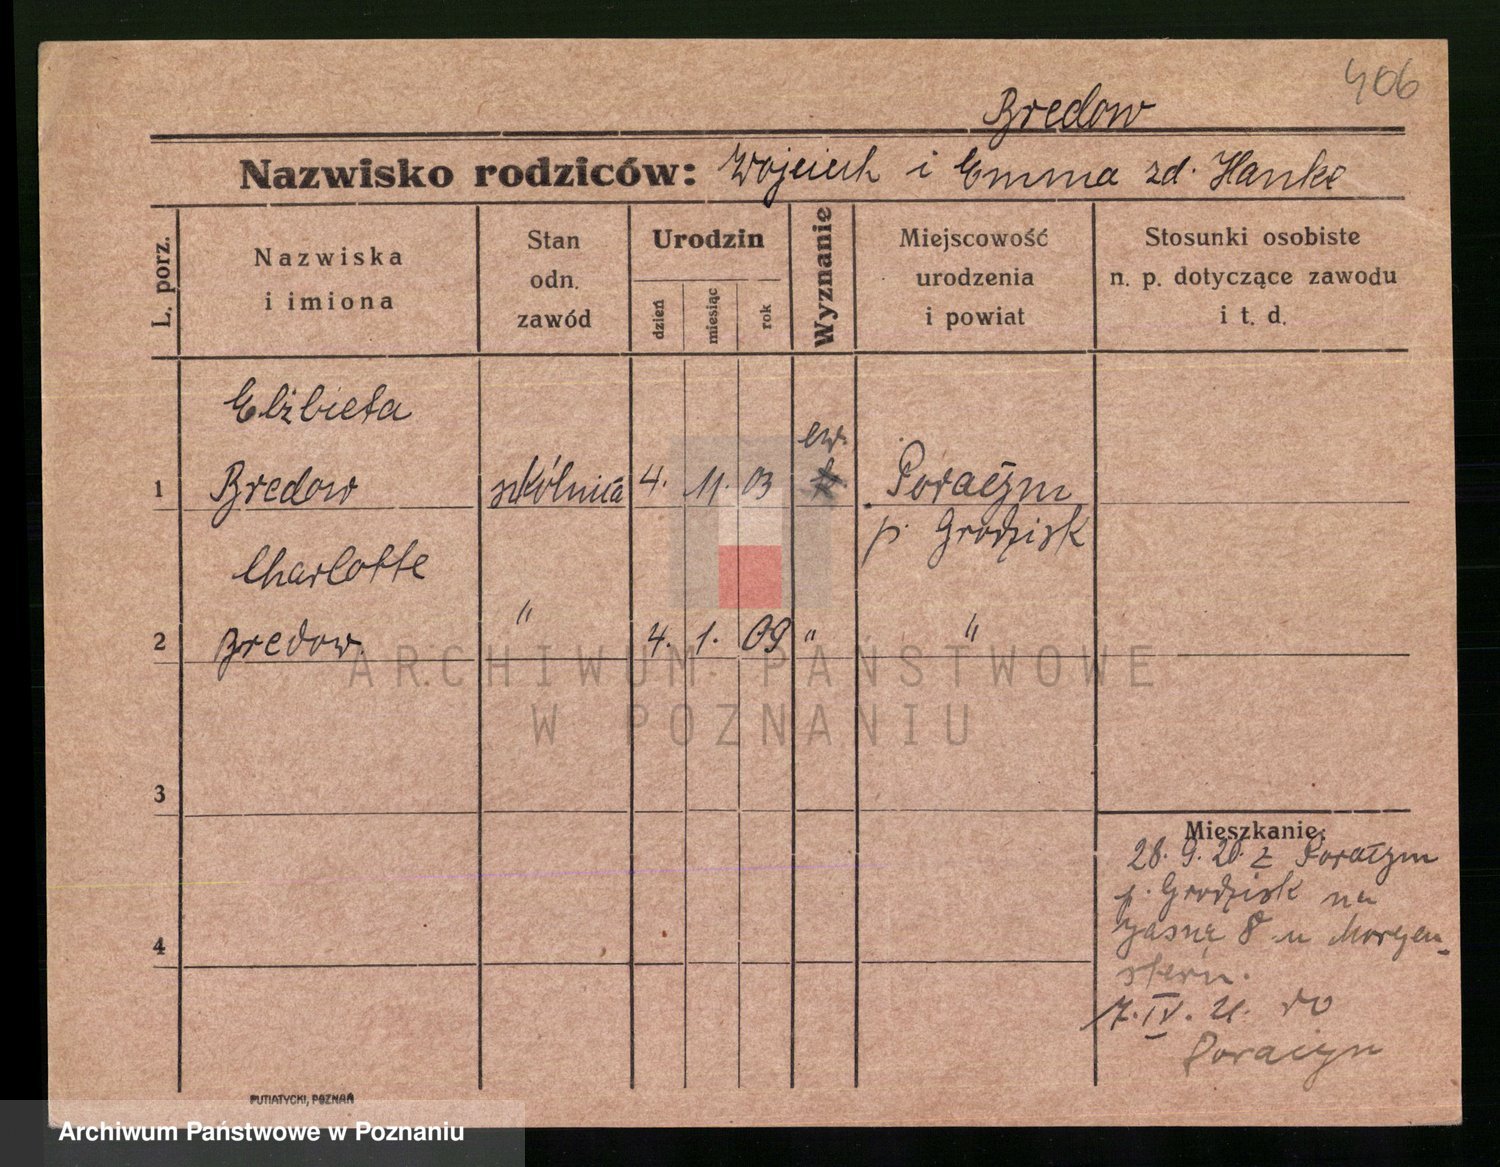 406
Bredow
Nazwisko rodziców: Wojciech i Emma zd. Hanke
L. porz.
Nazwiska
i imiona
Stan
odn.
zawód
Urodzin
dzień
miesiąc
rok
Wyznanie
Miejscowość
urodzenia
i powiat
Stosunki osobiste
n. p. dotyczące zawodu
i t. d.
Elżbieta
ew.
1 Bredow szkólnica 4. 11. 03 Poraczyn
p. Grodzisk
Charlotte
2 Bredow. " 4. 1. 09 " "
3
Mieszkanie:
28. 9. 20. z Poraczyn
p. Grodzisk na
Jasną 8 u Morgen-
stern.
4
7. IV. 21. do
Poraczyn
PUTIATYCKI, POZNAŃ
ARCHIWUM PAŃSTWOWE
W POZNANIU
Archiwum Państwowe w Poznaniu